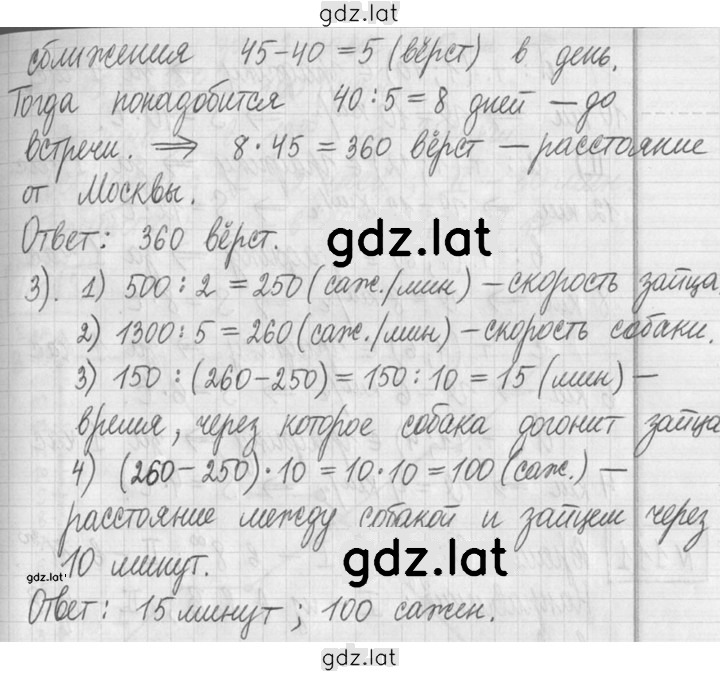 gdz.lat
сближения 45-40=5 (вёрст) в день.
Тогда понадобится 40:5=8 дней — до
встречи. ⟹ 8·45=360 вёрст — расстояние
от Москвы.
Ответ: 360 вёрст.
gdz.lat
3). 1) 500:2=250 (саж./мин) — скорость зайца
2) 1300:5=260 (саж./мин) — скорость собаки.
3) 150:(260-250)=150:10=15 (мин) —
время, через которое собака догонит зайца
4) (260-250)·10=10·10=100 (саж.) —
расстояние между собакой и зайцем через
10 минут.
gdz.lat
gdz.lat
Ответ: 15 минут; 100 сажен.
gdz.lat